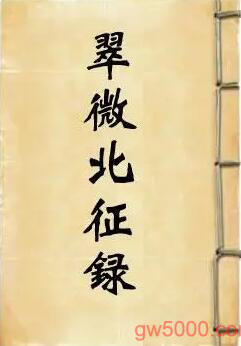 翠微北征録
gw5000.com